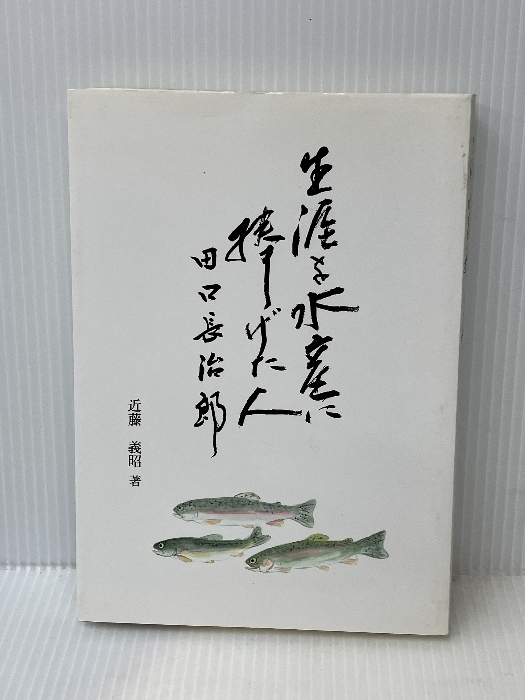 生涯を水産に
捧げた人
田口長治郎
近藤 義昭 著